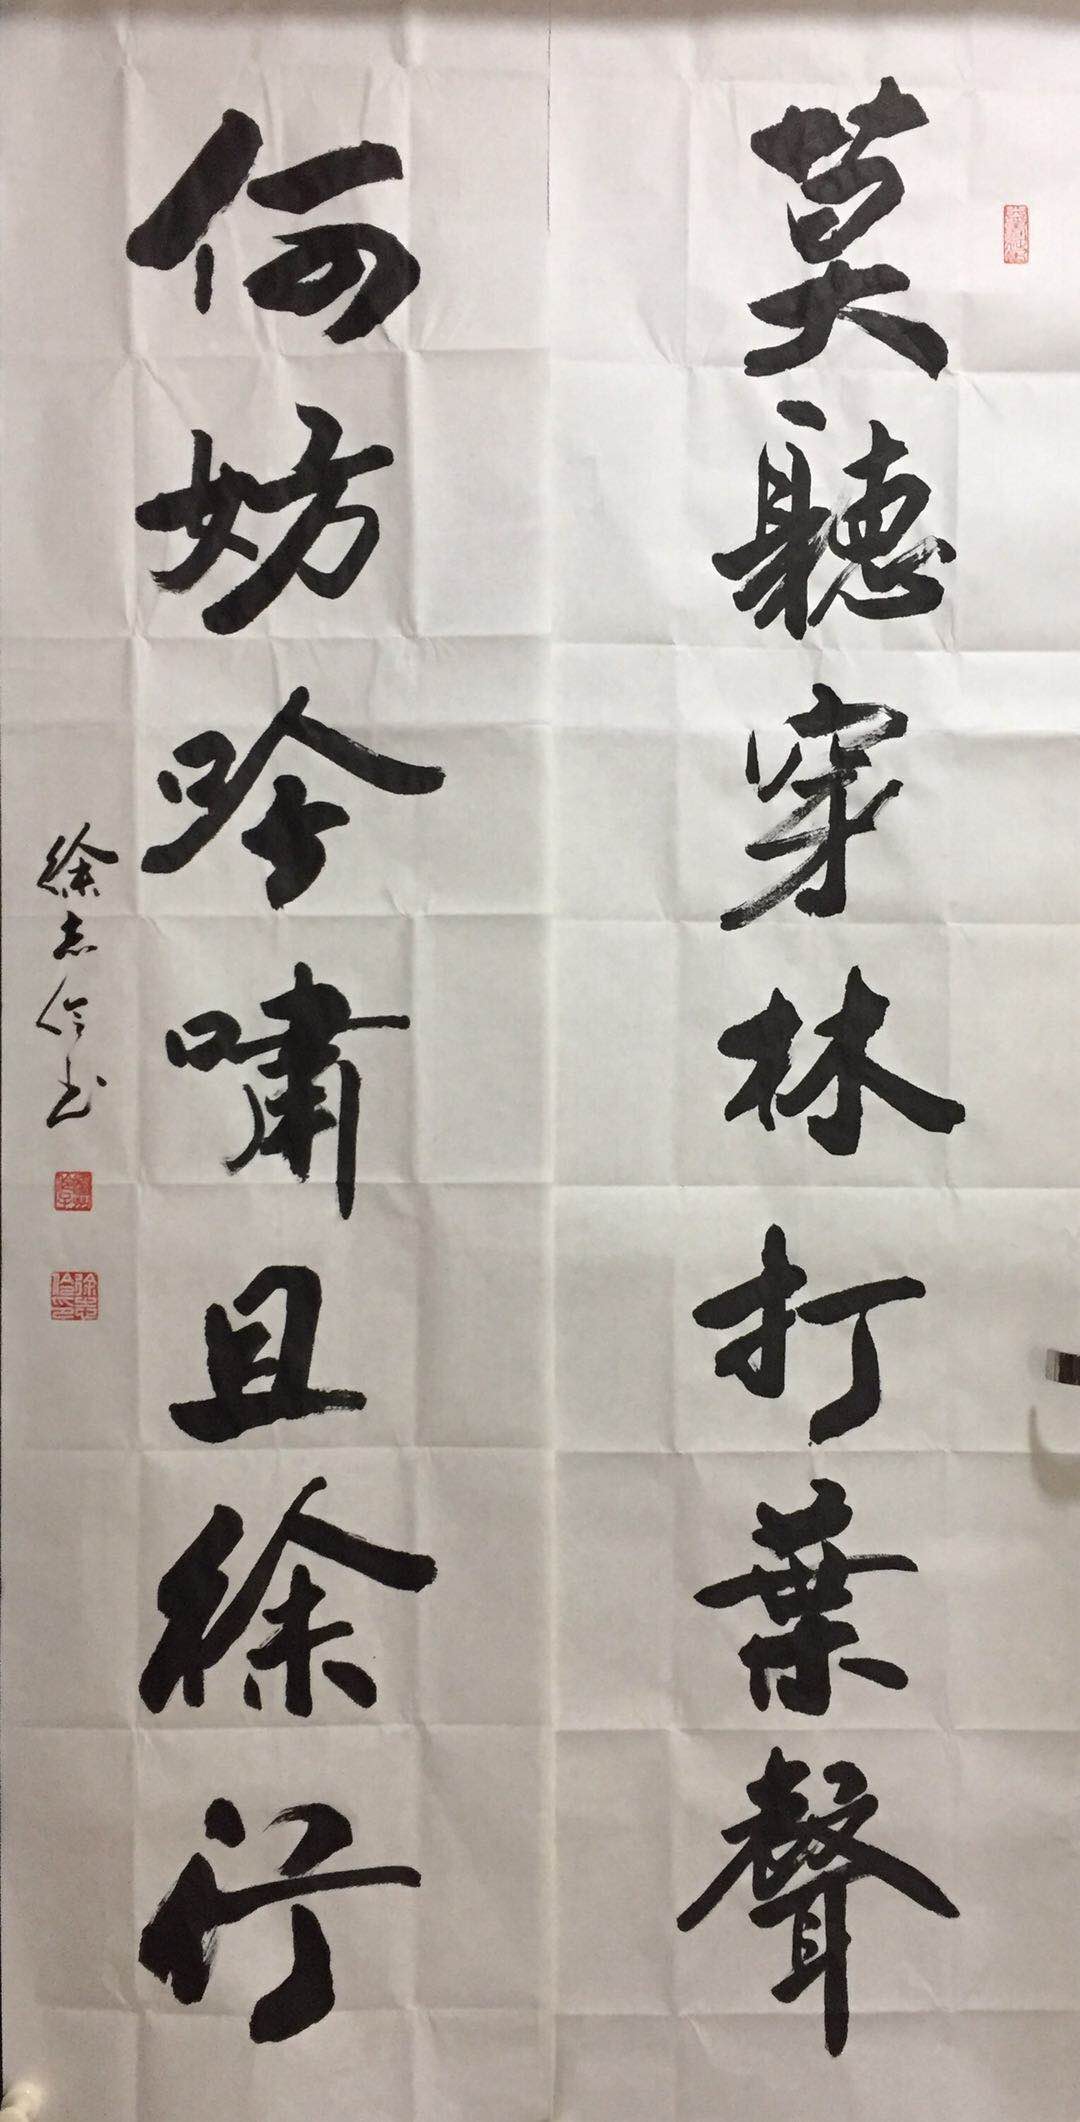 莫聽穿林打葉聲
何妨吟嘯且徐行
徐志伶书